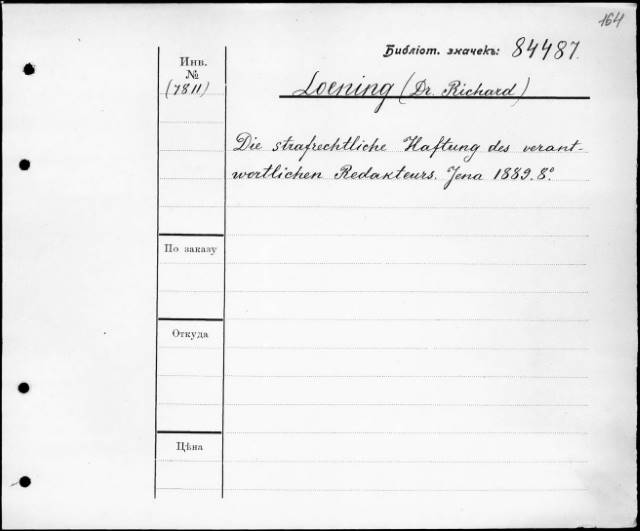 164
Библіот. значекъ: 84487.
Инв.
№
(7811)
Loening (Dr. Richard)
Die strafrechtliche Haftung des verant-
wortlichen Redakteurs. Jena 1889. 8°.
По заказу
Откуда
Цѣна